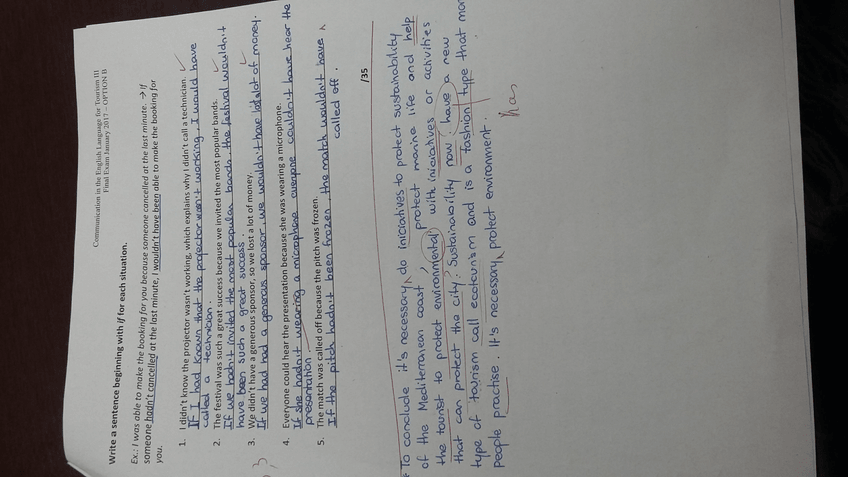 Communication in the English Language for Tourism III
Final Exam January 2017 – OPTION B
Write a sentence beginning with if for each situation.
Ex.: I was able to make the booking for you because someone cancelled at the last minute. → If
someone hadn't cancelled at the last minute, I wouldn't have been able to make the booking for
you.
1. I didn't know the projector wasn't working, which explains why I didn't call a technician.
If I had known that the projector won't working, I would have
called a technician.
2. The festival was such a great success because we invited the most popular bands.
If we hadn't invited the most popular bands, the festival wouldn't
have been such a great success.
3. We didn't have a generous sponsor, so we lost a lot of money.
If we had had a generous sponsor, we wouldn't have lost lot of money.
4. Everyone could hear the presentation because she was wearing a microphone.
If she hadn't wearing a microphone everyone couldn't have hear the
presentation.
5. The match was called off because the pitch was frozen.
If the pitch hadn't been frozen, the match wouldn't have
called off.
/35
To conclude it's necessary do iniciatives to protect sustainability
of the Mediterranean coast, protect marine life and help
the tourist to protect environmental with iniciatives or activities
that can protect the city. Sustainability now have a new
type of tourism call ecotourism and is a fashion type that mor
people practise. It's necessary protect environment.
has